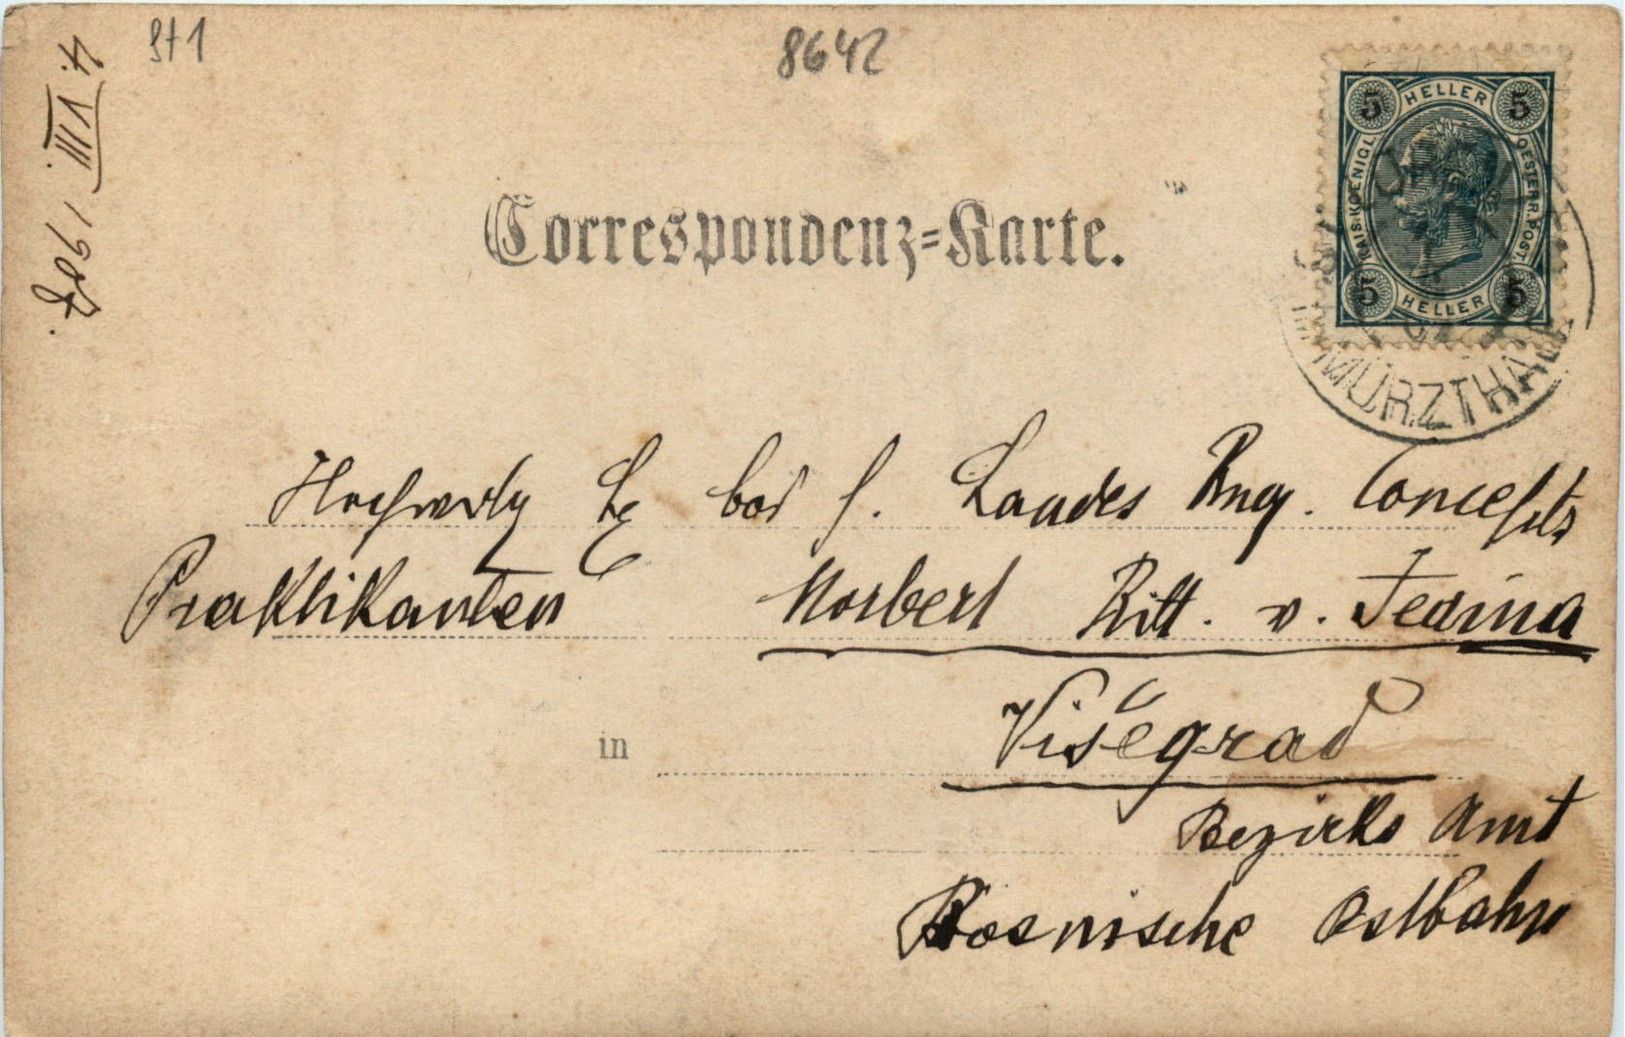 St 1
8642
4. VIII 1907.
Correspondenz-Karte.
5 HELLER 5
KAIS. KOENIGL. OESTERR. POST
5 HELLER 5
IM MÜRZTHALE
bos h. Landes Rng. Concepts
Praktikanten Norbert Ritt. v. Jedina
in Višegrad
Bezirks Amt
Bosnische Ostbahn